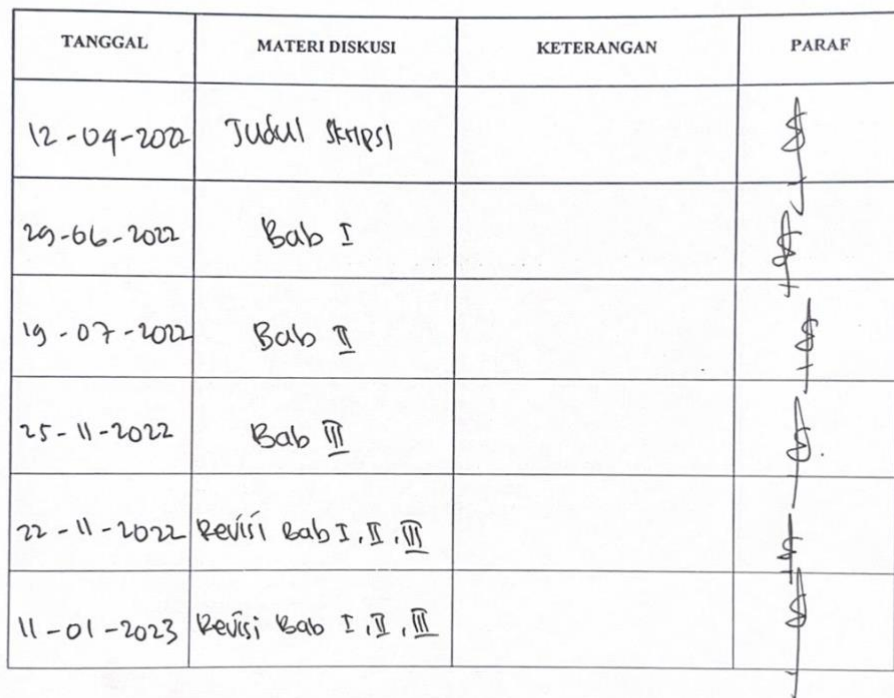 TANGGAL MATERI DISKUSI KETERANGAN PARAF
12-04-2022 Judul Skripsi
29-06-2022 Bab I
19-07-2022 Bab II
25-11-2022 Bab III
22-11-2022 Revisi Bab I, II, III
11-01-2023 Revisi Bab I, II, III